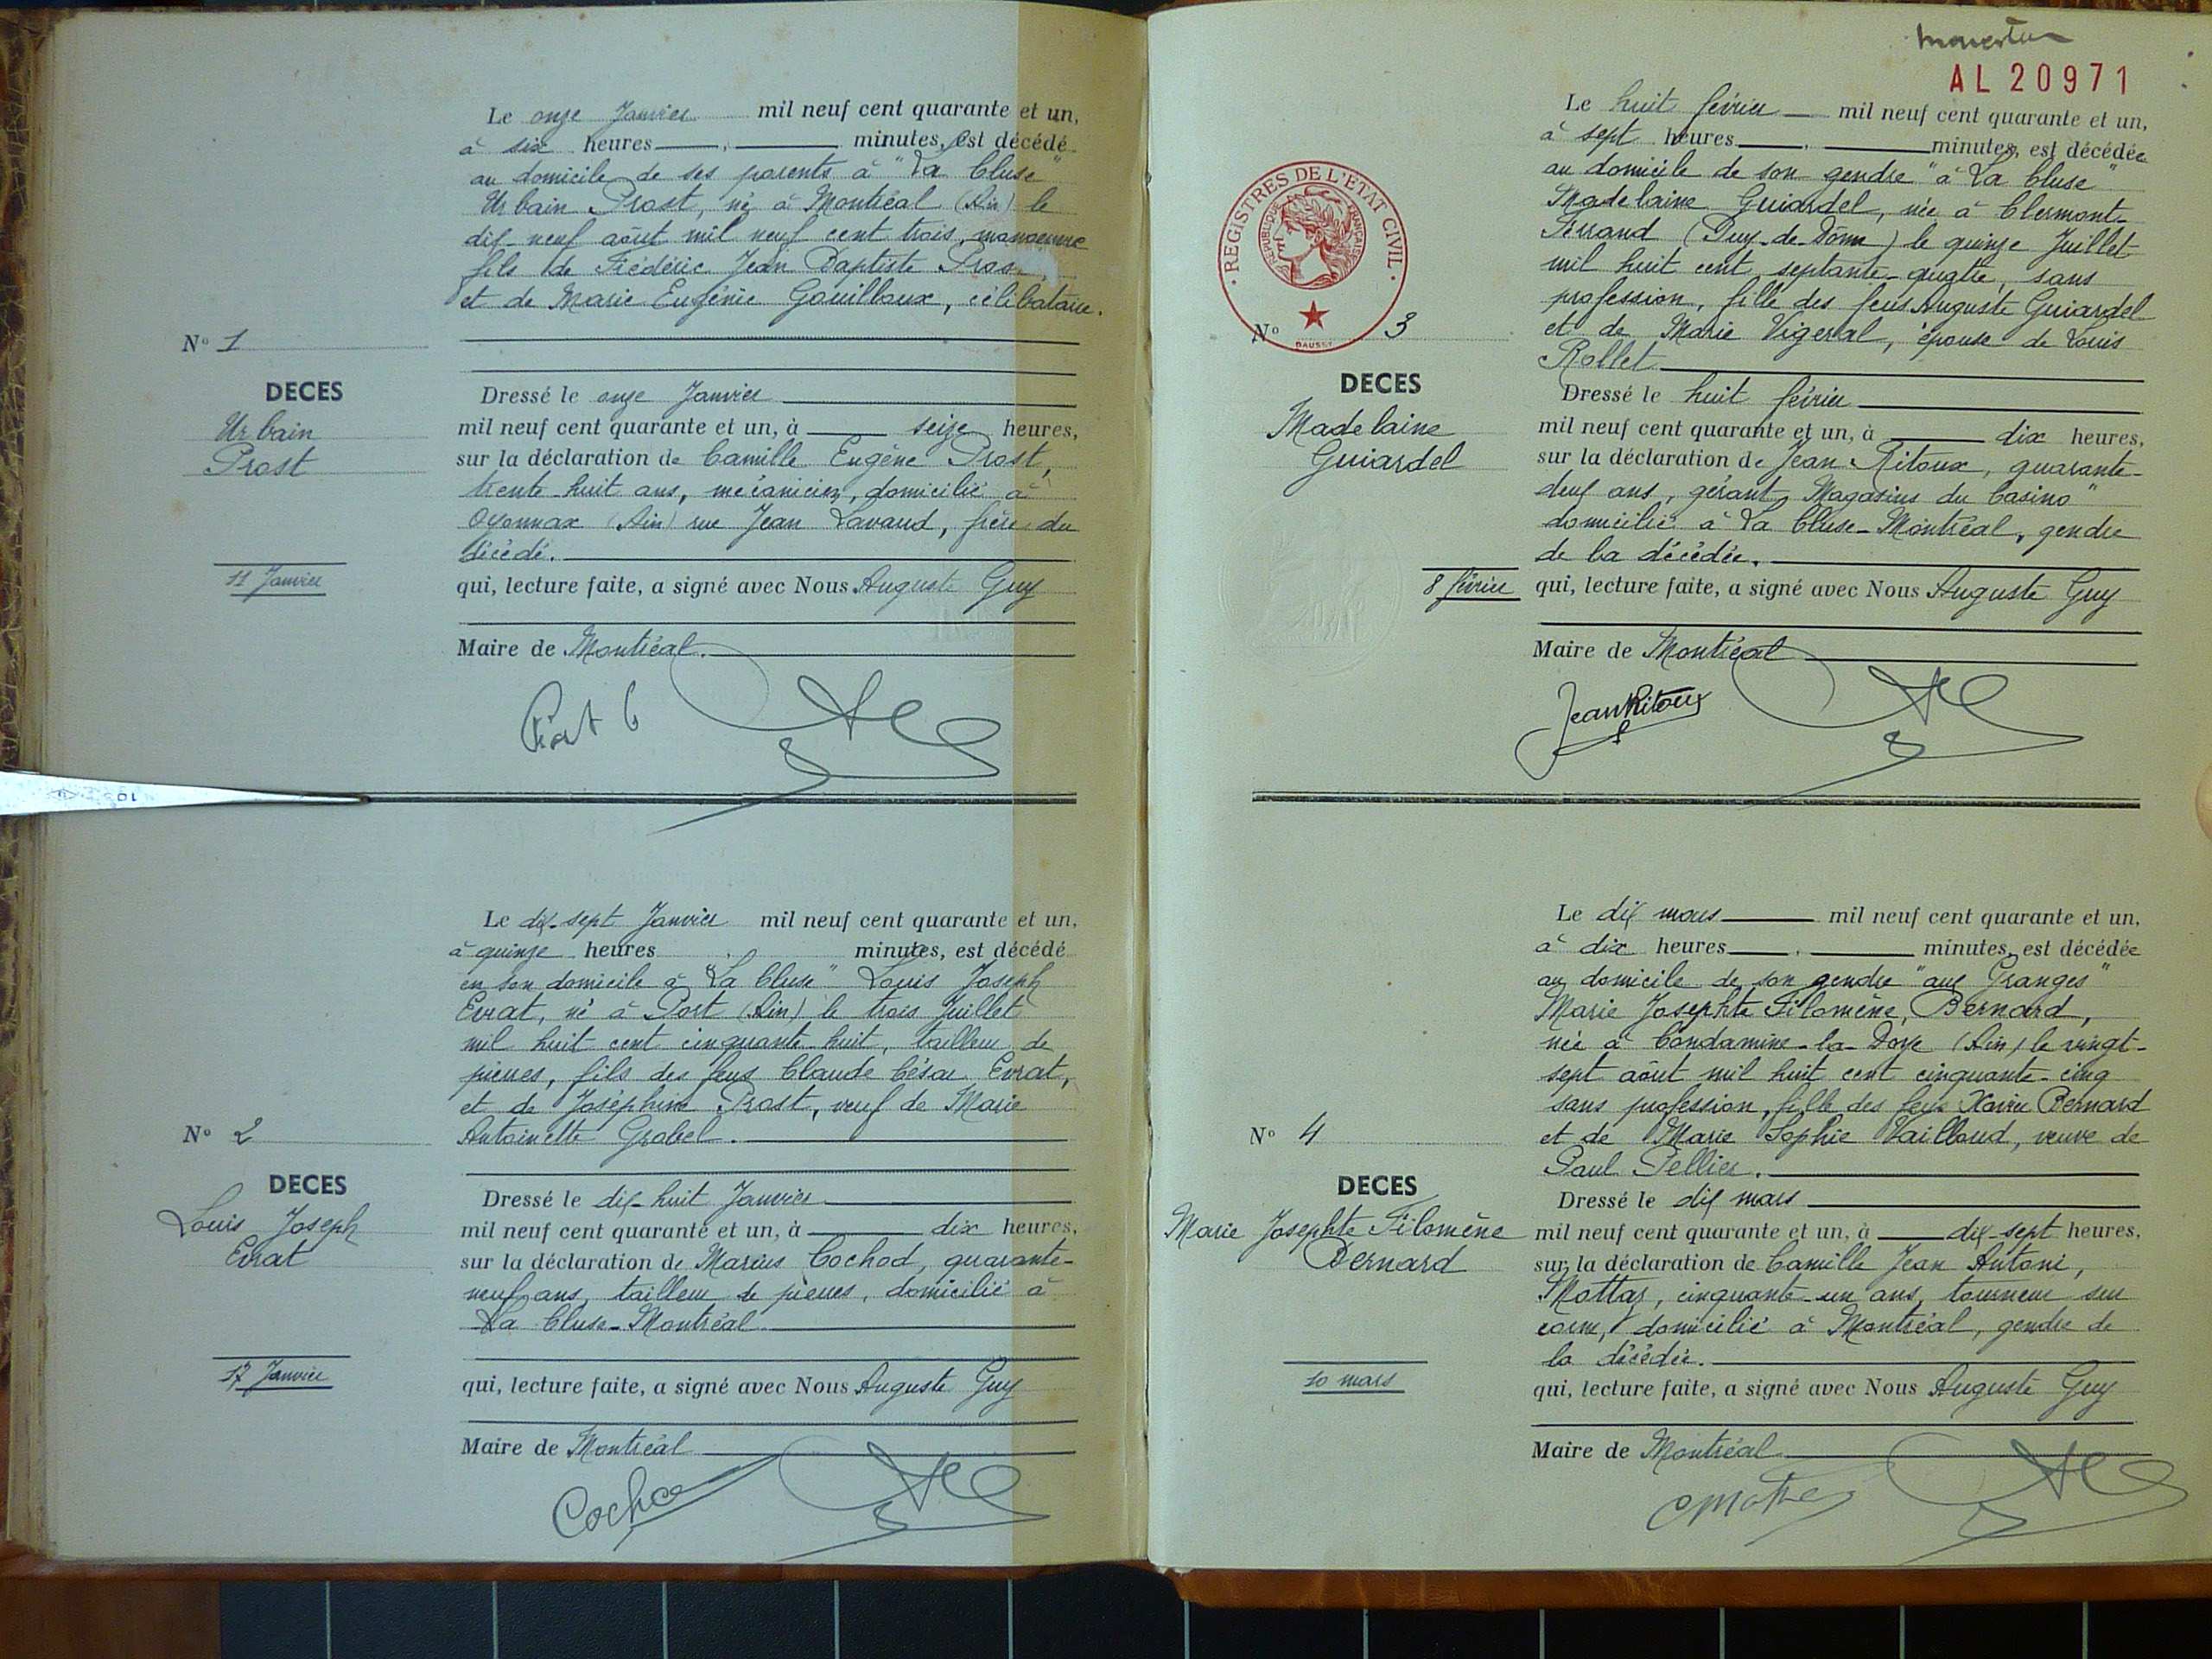 Le onze Janvier mil neuf cent quarante et un,
à six heures , minutes, est décédé
au domicile de ses parents à "La Cluse"
Urbain Prost, né à Montréal (Ain) le
dix-neuf août mil neuf cent trois, manoeuvre
fils de Frédéric Jean Baptiste Pros
et de Marie Eugénie Gouilloux, célibataire.
N° 1
DECES
Urbain
Prost
11 Janvier
Dressé le onze Janvier
mil neuf cent quarante et un, à seize heures,
sur la déclaration de Camille Eugène Prost,
trente-huit ans, mécanicien, domicilié à
Oyonnax (Ain) rue Jean Lavaud, frère du
décédé.
qui, lecture faite, a signé avec Nous Auguste Guy
Maire de Montréal.
Le dix-sept Janvier mil neuf cent quarante et un,
à quinze heures , minutes, est décédé
en son domicile à "La Cluse" Louis Joseph
Evrat, né à Port (Ain) le trois Juillet
mil huit cent cinquante-huit, tailleur de
pierres, fils des feus Claude César Evrat,
et de Joséphine Prost, veuf de Marie
Antoinette Grobel.
N° 2
DECES
Louis Joseph
Evrat
17 Janvier
Dressé le dix-huit Janvier
mil neuf cent quarante et un, à dix heures,
sur la déclaration de Marius Cochod, quarante-
neuf ans, tailleur de pierres, domicilié à
La Cluse-Montréal
qui, lecture faite, a signé avec Nous Auguste Guy
Maire de Montréal
AL 20971
Le huit février mil neuf cent quarante et un,
à sept heures , minutes, est décédée
au domicile de son gendre "à La Cluse"
Madelaine Guiardel, née à Clermont-
Ferrand (Puy-de-Dôme) le quinze Juillet
mil huit cent septante-quatre, sans
profession, fille des feus Auguste Guiardel
et de Marie Vigeral, épouse de Louis
Rollet
REGISTRES DE L'ETAT CIVIL
REPUBLIQUE FRANCAISE
N° 3
DECES
Madelaine
Guiardel
8 février
Dressé le huit février
mil neuf cent quarante et un, à dix heures,
sur la déclaration de Jean Ritoux, quarante-
deux ans, gérant "Magasins du Casino"
domicilié à La Cluse-Montréal, gendre
de la décédée.
qui, lecture faite, a signé avec Nous Auguste Guy
Maire de Montréal
Jean Ritoux
Le dix mars mil neuf cent quarante et un,
à dix heures , minutes, est décédée
au domicile de son gendre "aux Granges"
Marie Josephte Filomène Bernard,
née à Condamine-la-Doye (Ain) le vingt-
sept août mil huit cent cinquante-cinq
sans profession, fille des feus Xavier Bernard
et de Marie Sophie Vailloud, veuve de
Paul Pellier.
N° 4
DECES
Marie Josephte Filomène
Bernard
10 mars
Dressé le dix mars
mil neuf cent quarante et un, à dix-sept heures,
sur la déclaration de Camille Jean Antoni,
Mottaz, cinquante-un ans, tourneur sur
corne, domicilié à Montréal, gendre de
la décédée.
qui, lecture faite, a signé avec Nous Auguste Guy
Maire de Montréal